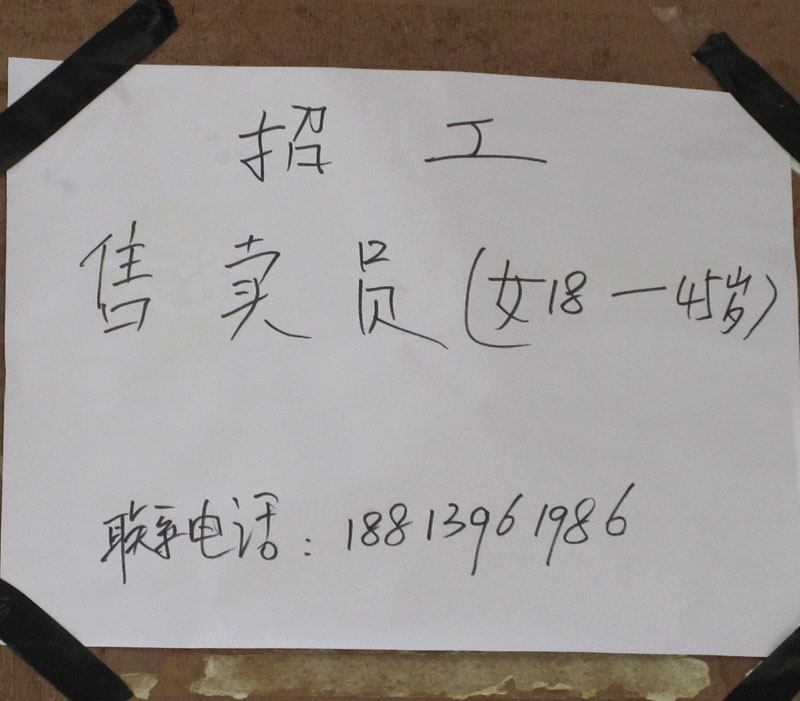 招工
售卖员(女18—45岁)
联系电话:18813961986